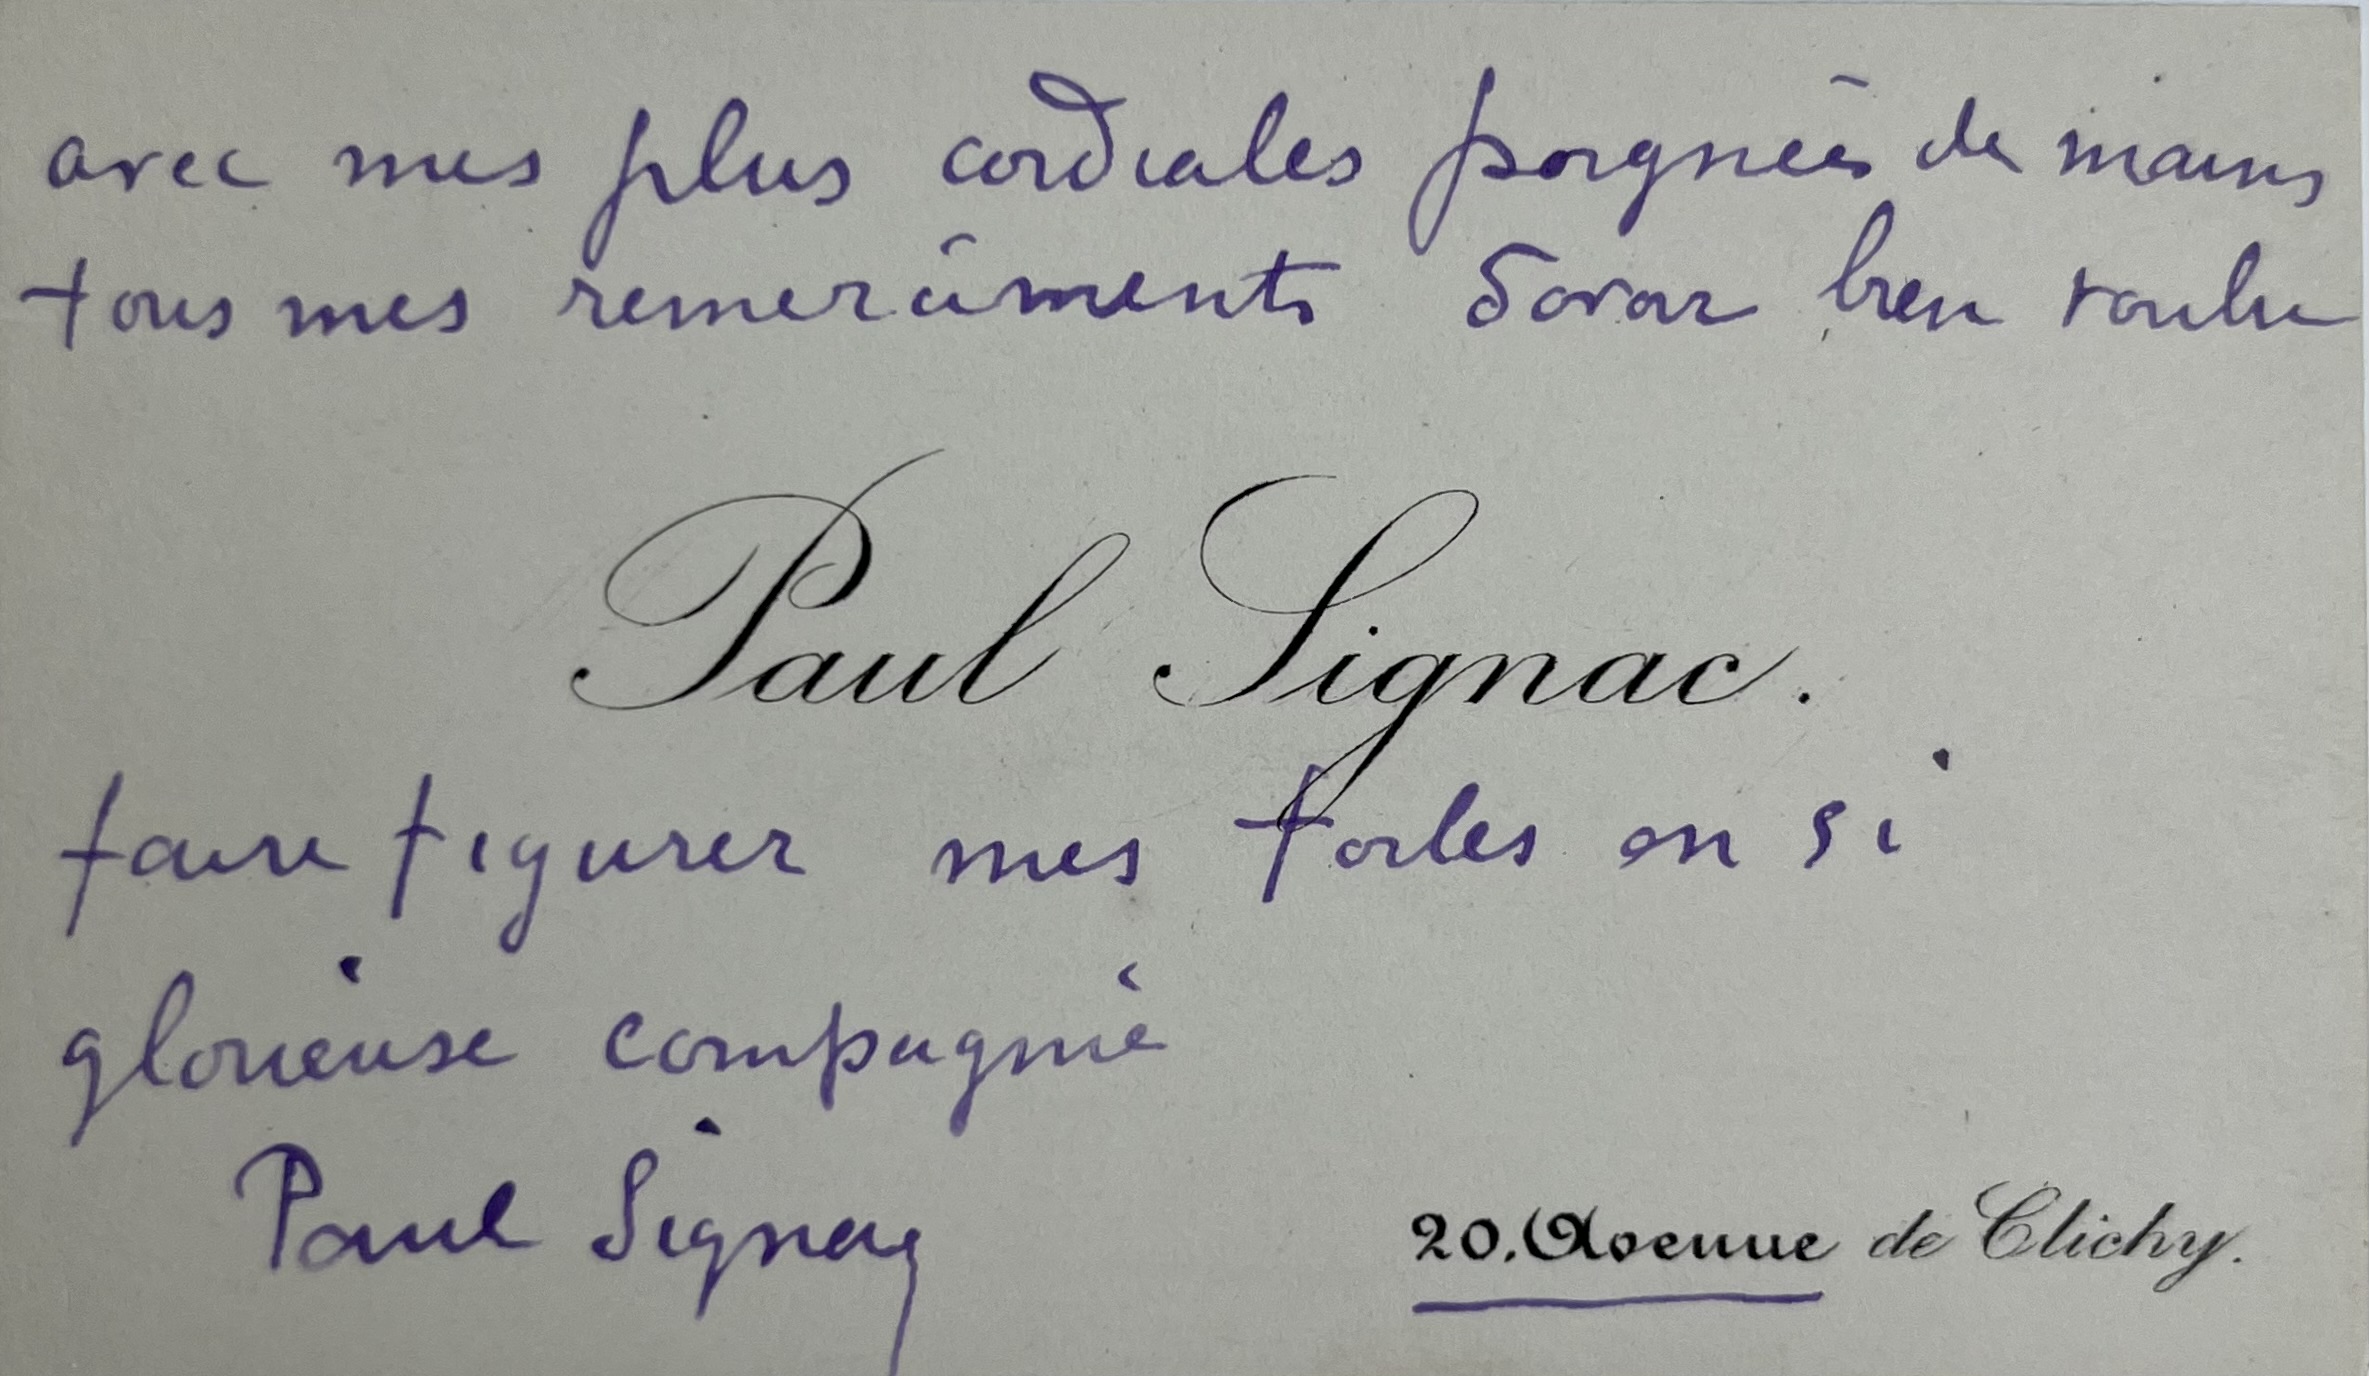 avec mes plus cordiales poignées de mains
tous mes remerciments d'avoir bien voulu
Paul Signac.
faire figurer mes toiles en si
glorieuse compagnie
Paul Signac
20. Avenue de Clichy.